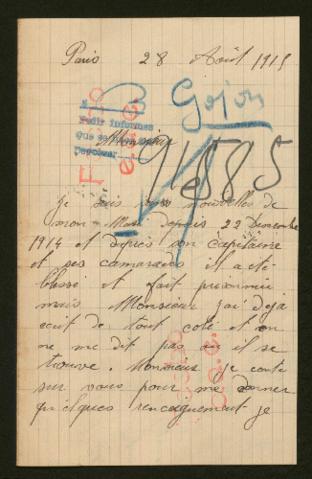 Paris 28 Août 1915
Gojon
Pedir informes
que se
Monsieur
9'585
Je suis sans nouvelles de
mon Mari depuis 22 Decembre
1914 et depres son capitaine
et ses camarades il a eté
blessé et fait prisonnier
mais Monsieur j'ai deja
ecrit de tout coté et on
ne me dit pas ou il se
trouve. Monsieur je conte
sur vous pour me donner
quelques renseignement je